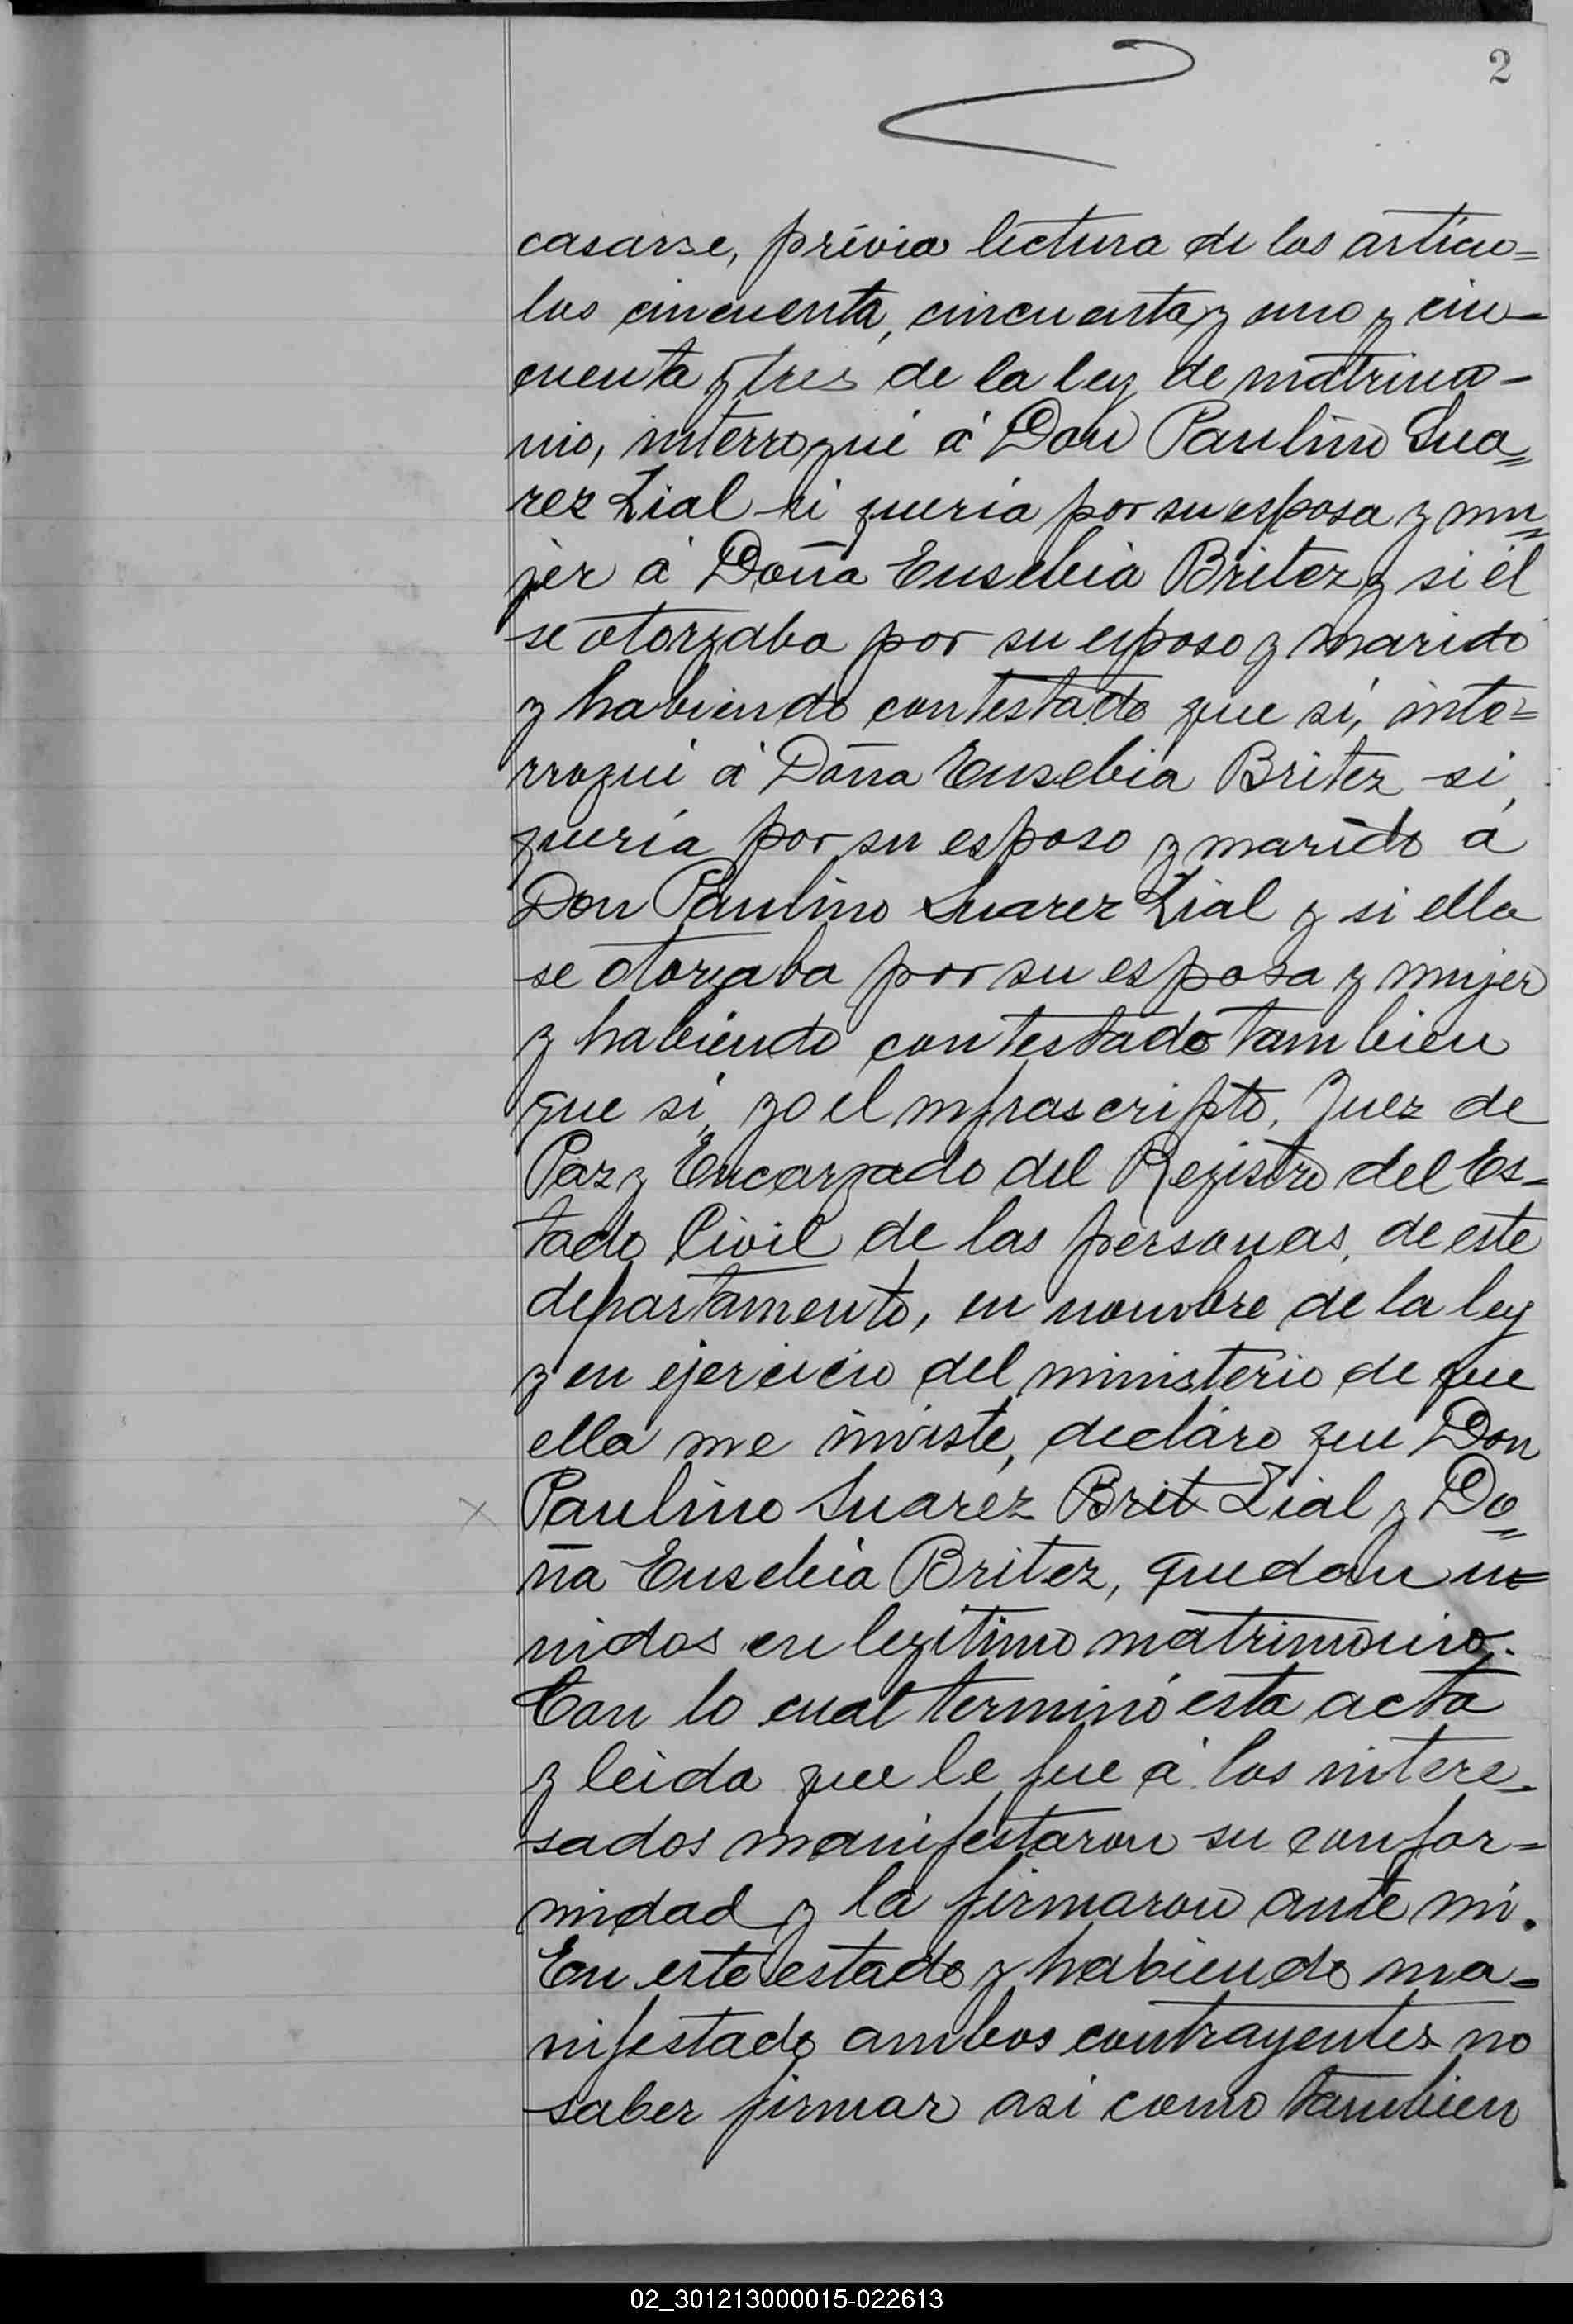 2
casarse, prévia lectura de los artícu=
los cincuenta, cincuenta y uno y cin-
cuenta y tres de la ley de matrimo-
nio, interrogué á Don Paulino Sua=
rez Lial si quería por su esposa y mu=
jer á Doña Eusebia Britez y si él
se otorgaba por su esposo y marido
y habiendo contestado que sí, inte=
rrogué á Doña Eusebia Britez si
quería por su esposo y marido á
Don Paulino Suarez Lial y si ella
se otorgaba por su esposa y mujer
y habiendo contestado tambien
que sí, yo el infrascripto, Juez de
Paz y Encargado del Registro del Es-
tado Civil de las personas, de este
departamento, en nombre de la ley
y en ejercicio del ministerio de que
ella me inviste, declaro que Don
Paulino Suarez Brit Lial y Do=
ña Eusebia Britez, quedan u=
nidos en legítimo matrimonio.
Con lo cual terminó esta acta
y leida que le fue á los intere-
sados manifestaron su confor=
midad y la firmaron ante mí.
En este estado y habiendo ma=
nifestado ambos contrayentes no
saber firmar asi como tambien
02_301213000015-022613